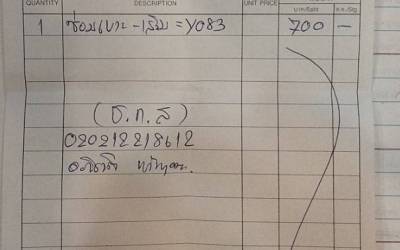 QUANTITY DESCRIPTION UNIT PRICE บาท/Baht ส.ต./Stg
1 ซ่อมเบาะ - = Y083 700 —
(ธ.ก.ส)
020212218612